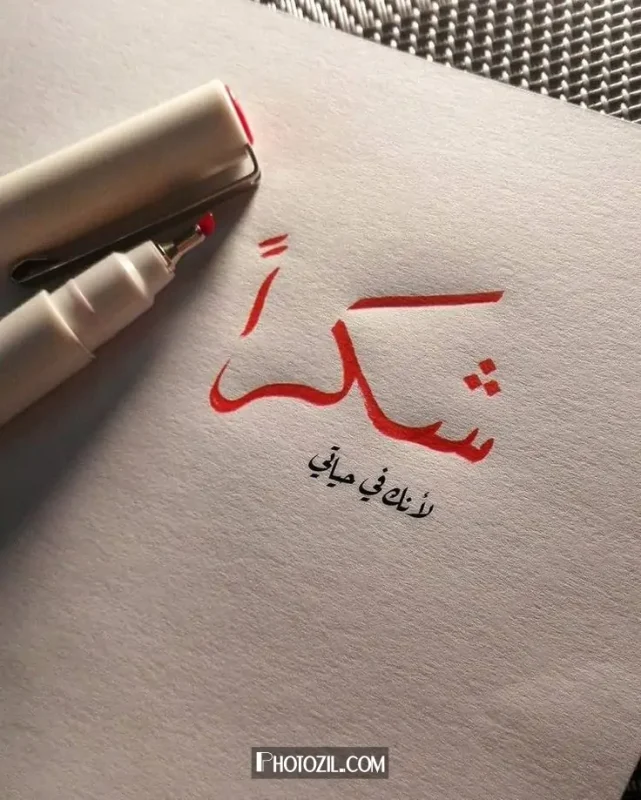 شكراً
لأنك في حياتي
PHOTOZIL.COM